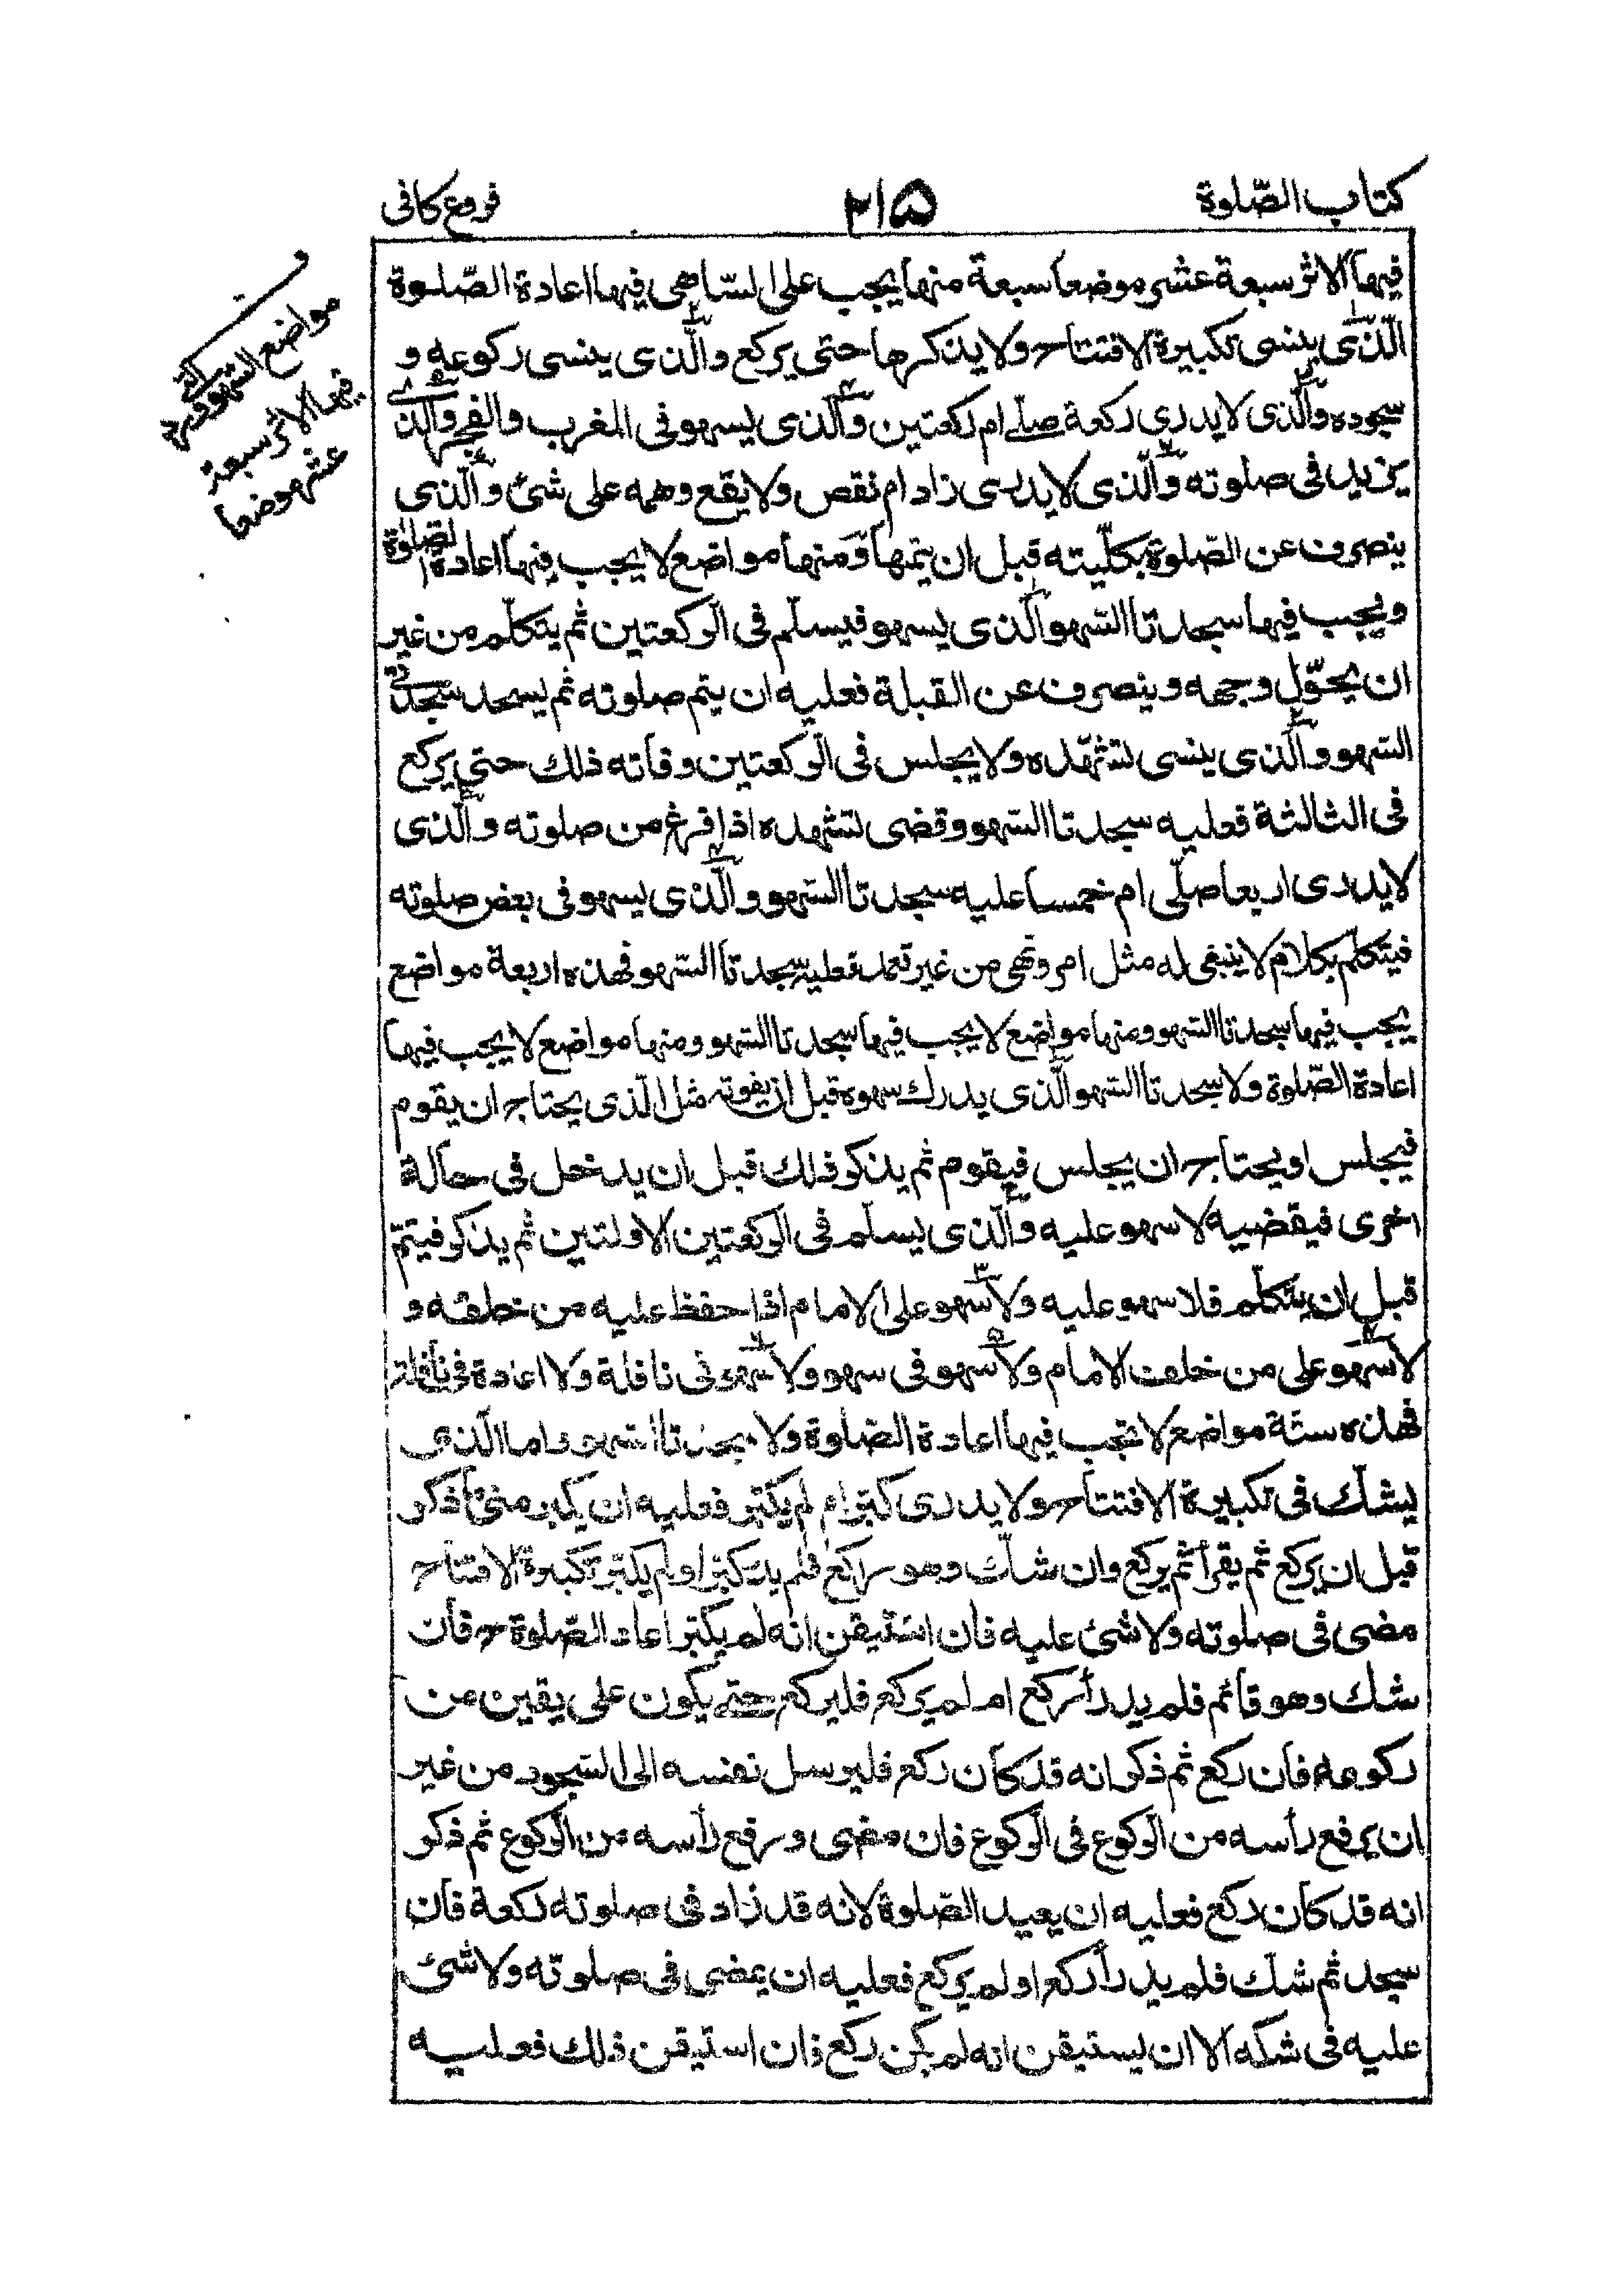 كتاب الصّلوة
٢١٥
فروع كافى
فيها الاثر سبعة عشر موضعا سبعة منها يجب على السّاهى فيها اعادة الصّلوة
الّذى ينسى تكبيرة الافتتاح ولا يذكرها حتى يركع والّذى ينسى ركوعه و
سجوده والّذى لا يدرى ركعة صلّى ام ركعتين والّذى يسهو فى المغرب والفجر والّذى
يزيد فى صلوته والّذى لا يدرى زاد ام نقص ولا يقع وهمه على شئ والّذى
ينصرف عن الصّلوة بكلّيته قبل ان يتمها ومنها مواضع لا يجب فيها اعادة الصّلوة
ويجب فيها سجدتا السّهو الّذى يسهو فيسلّم فى الرّكعتين ثم يتكلّم من غير
ان يحوّل وجهه وينصرف عن القبلة فعليه ان يتم صلوته ثم يسجد سجدتى
السّهو والّذى ينسى تشهّده ولا يجلس فى الرّكعتين وفاته ذلك حتى يركع
فى الثالثة فعليه سجدتا السّهو وقضى تشهده اذا فرغ من صلوته والّذى
لا يدرى اربعا صلّى ام خمسا عليه سجدتا السّهو والّذى يسهو فى بعض صلوته
فيتكلّم بكلام لا ينبغى له مثل امر ونهى من غير تعمد فعليه سجدتا السّهو فهذه اربعة مواضع
يجب فيها سجدتا السّهو ومنها مواضع لا يجب فيها سجدتا السّهو ومنها مواضع لا يجب فيها
اعادة الصّلوة ولا سجدتا السّهو الّذى يدرك سهوه قبل ان يفوته مثل الّذى يحتاج ان يقوم
فيجلس او يحتاج ان يجلس فيقوم ثم يذكر ذلك قبل ان يدخل فى حالة
اخرى فيقضيه لا سهو عليه والّذى يسلّم فى الرّكعتين الاولتين ثم يذكر فيتمّ
قبل ان يتكلّم فلا سهو عليه ولا سهو على الامام اذا حفظ عليه من خلفه و
لا سهو على من خلف الامام ولا سهو فى سهو ولا سهو فى نافلة ولا اعادة فى نافلة
فهذه ستّة مواضع لا تجب فيها اعادة الصّلوة ولا سجدتا السّهو واما الّذى
يشكّ فى تكبيرة الافتتاح ولا يدرى كبّر ام لم يكبّر فعليه ان يكبر متى ما ذكر
قبل ان يركع ثم يقرأ ثم يركع وان شكّ وهو راكع فلم يدر كبّر او لم يكبّر تكبيرة الافتتاح
مضى فى صلوته ولا شئ عليه فان استيقن انه لم يكبّر اعاد الصّلوة ح فان
شك وهو قائم فلم يدر أركع ام لم يركع فليركع حتى يكون على يقين من
ركوعه فان ركع ثم ذكر انه قد كان ركع فليرسل نفسه الى السّجود من غير
ان يرفع رأسه من الرّكوع فى الرّكوع فان مضى ورفع رأسه من الرّكوع ثم ذكر
انه قد كان ركع فعليه ان يعيد الصّلوة لانه قد زاد فى صلوته ركعة فان
سجد ثم شكّ فلم يدر أركع او لم يركع فعليه ان يمضى فى صلوته ولا شئ
عليه فى شكه الا ان يستيقن انه لم يكن ركع فان استيقن ذلك فعليه
مواضع السّهو
فيها الاثر سبعة
عشر موضعا